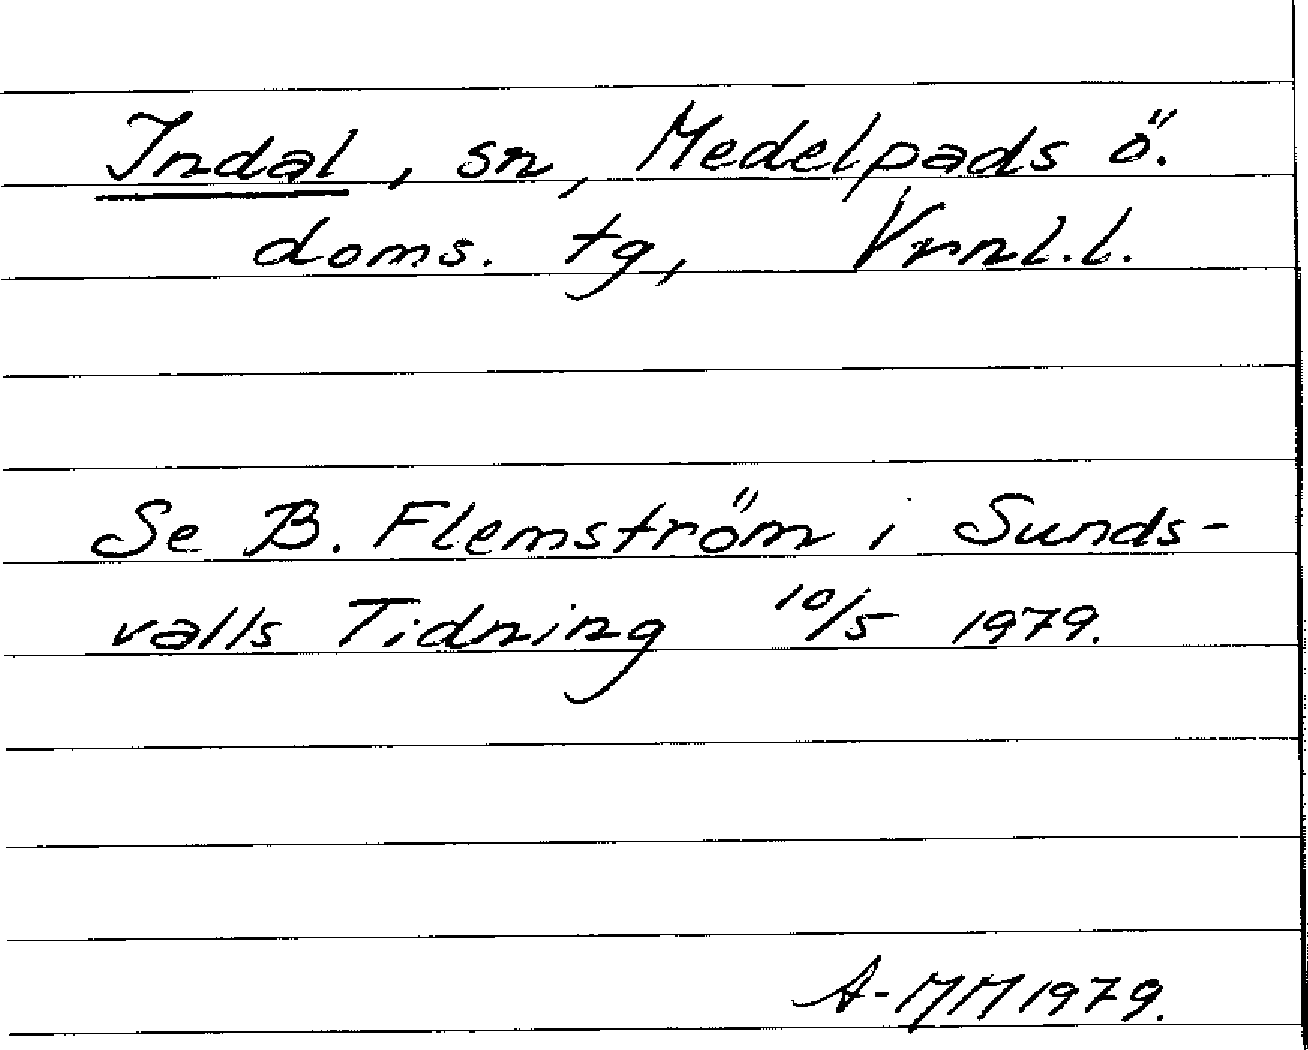 Indal, sn, Medelpads ö.
doms. tg, Vrnl.l.
Se B. Flemström i Sunds-
valls Tidning 10/5 1979.
A-MM 1979.